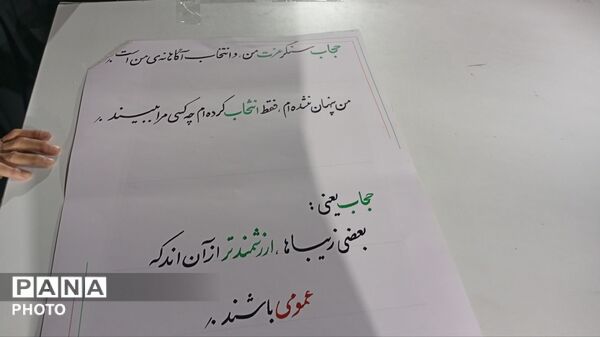 حجاب سنگر عزت من، و انتخاب آگاهانه‌ی من است
من پنهان نشده‌ام، فقط انتخاب کرده‌ام چه کسی مرا ببیند
حجاب یعنی:
بعضی زیباها، ارزشمندتر از آن اند که
عمومی باشند
PANA
PHOTO